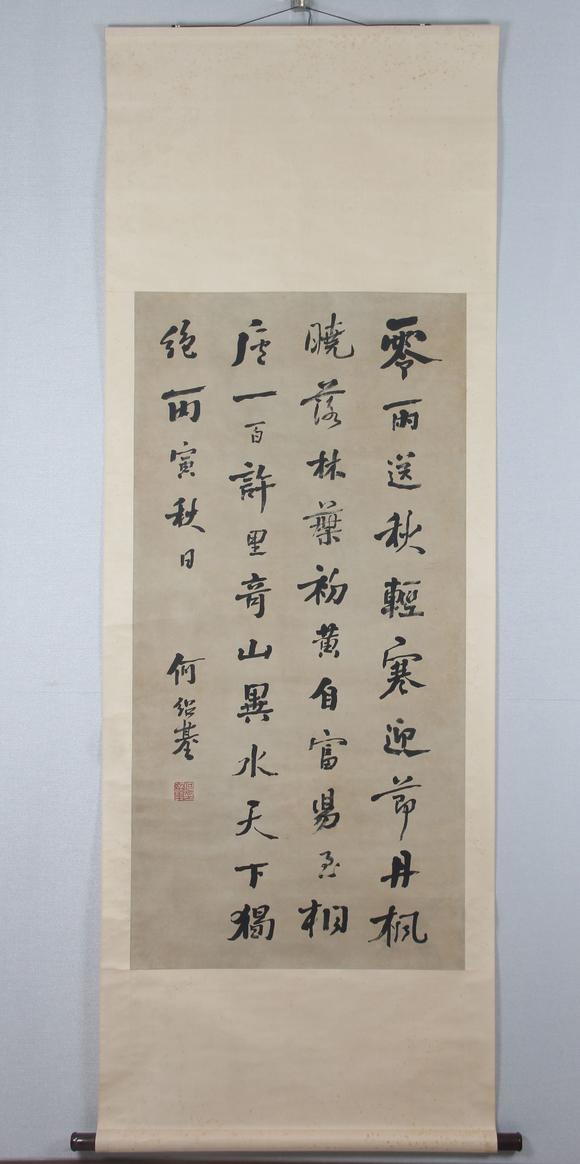 零雨送秋輕寒迎節丹楓
曉落林葉初黃自富陽至桐
廬一百許里奇山異水天下獨
絕丙寅秋日
何紹基